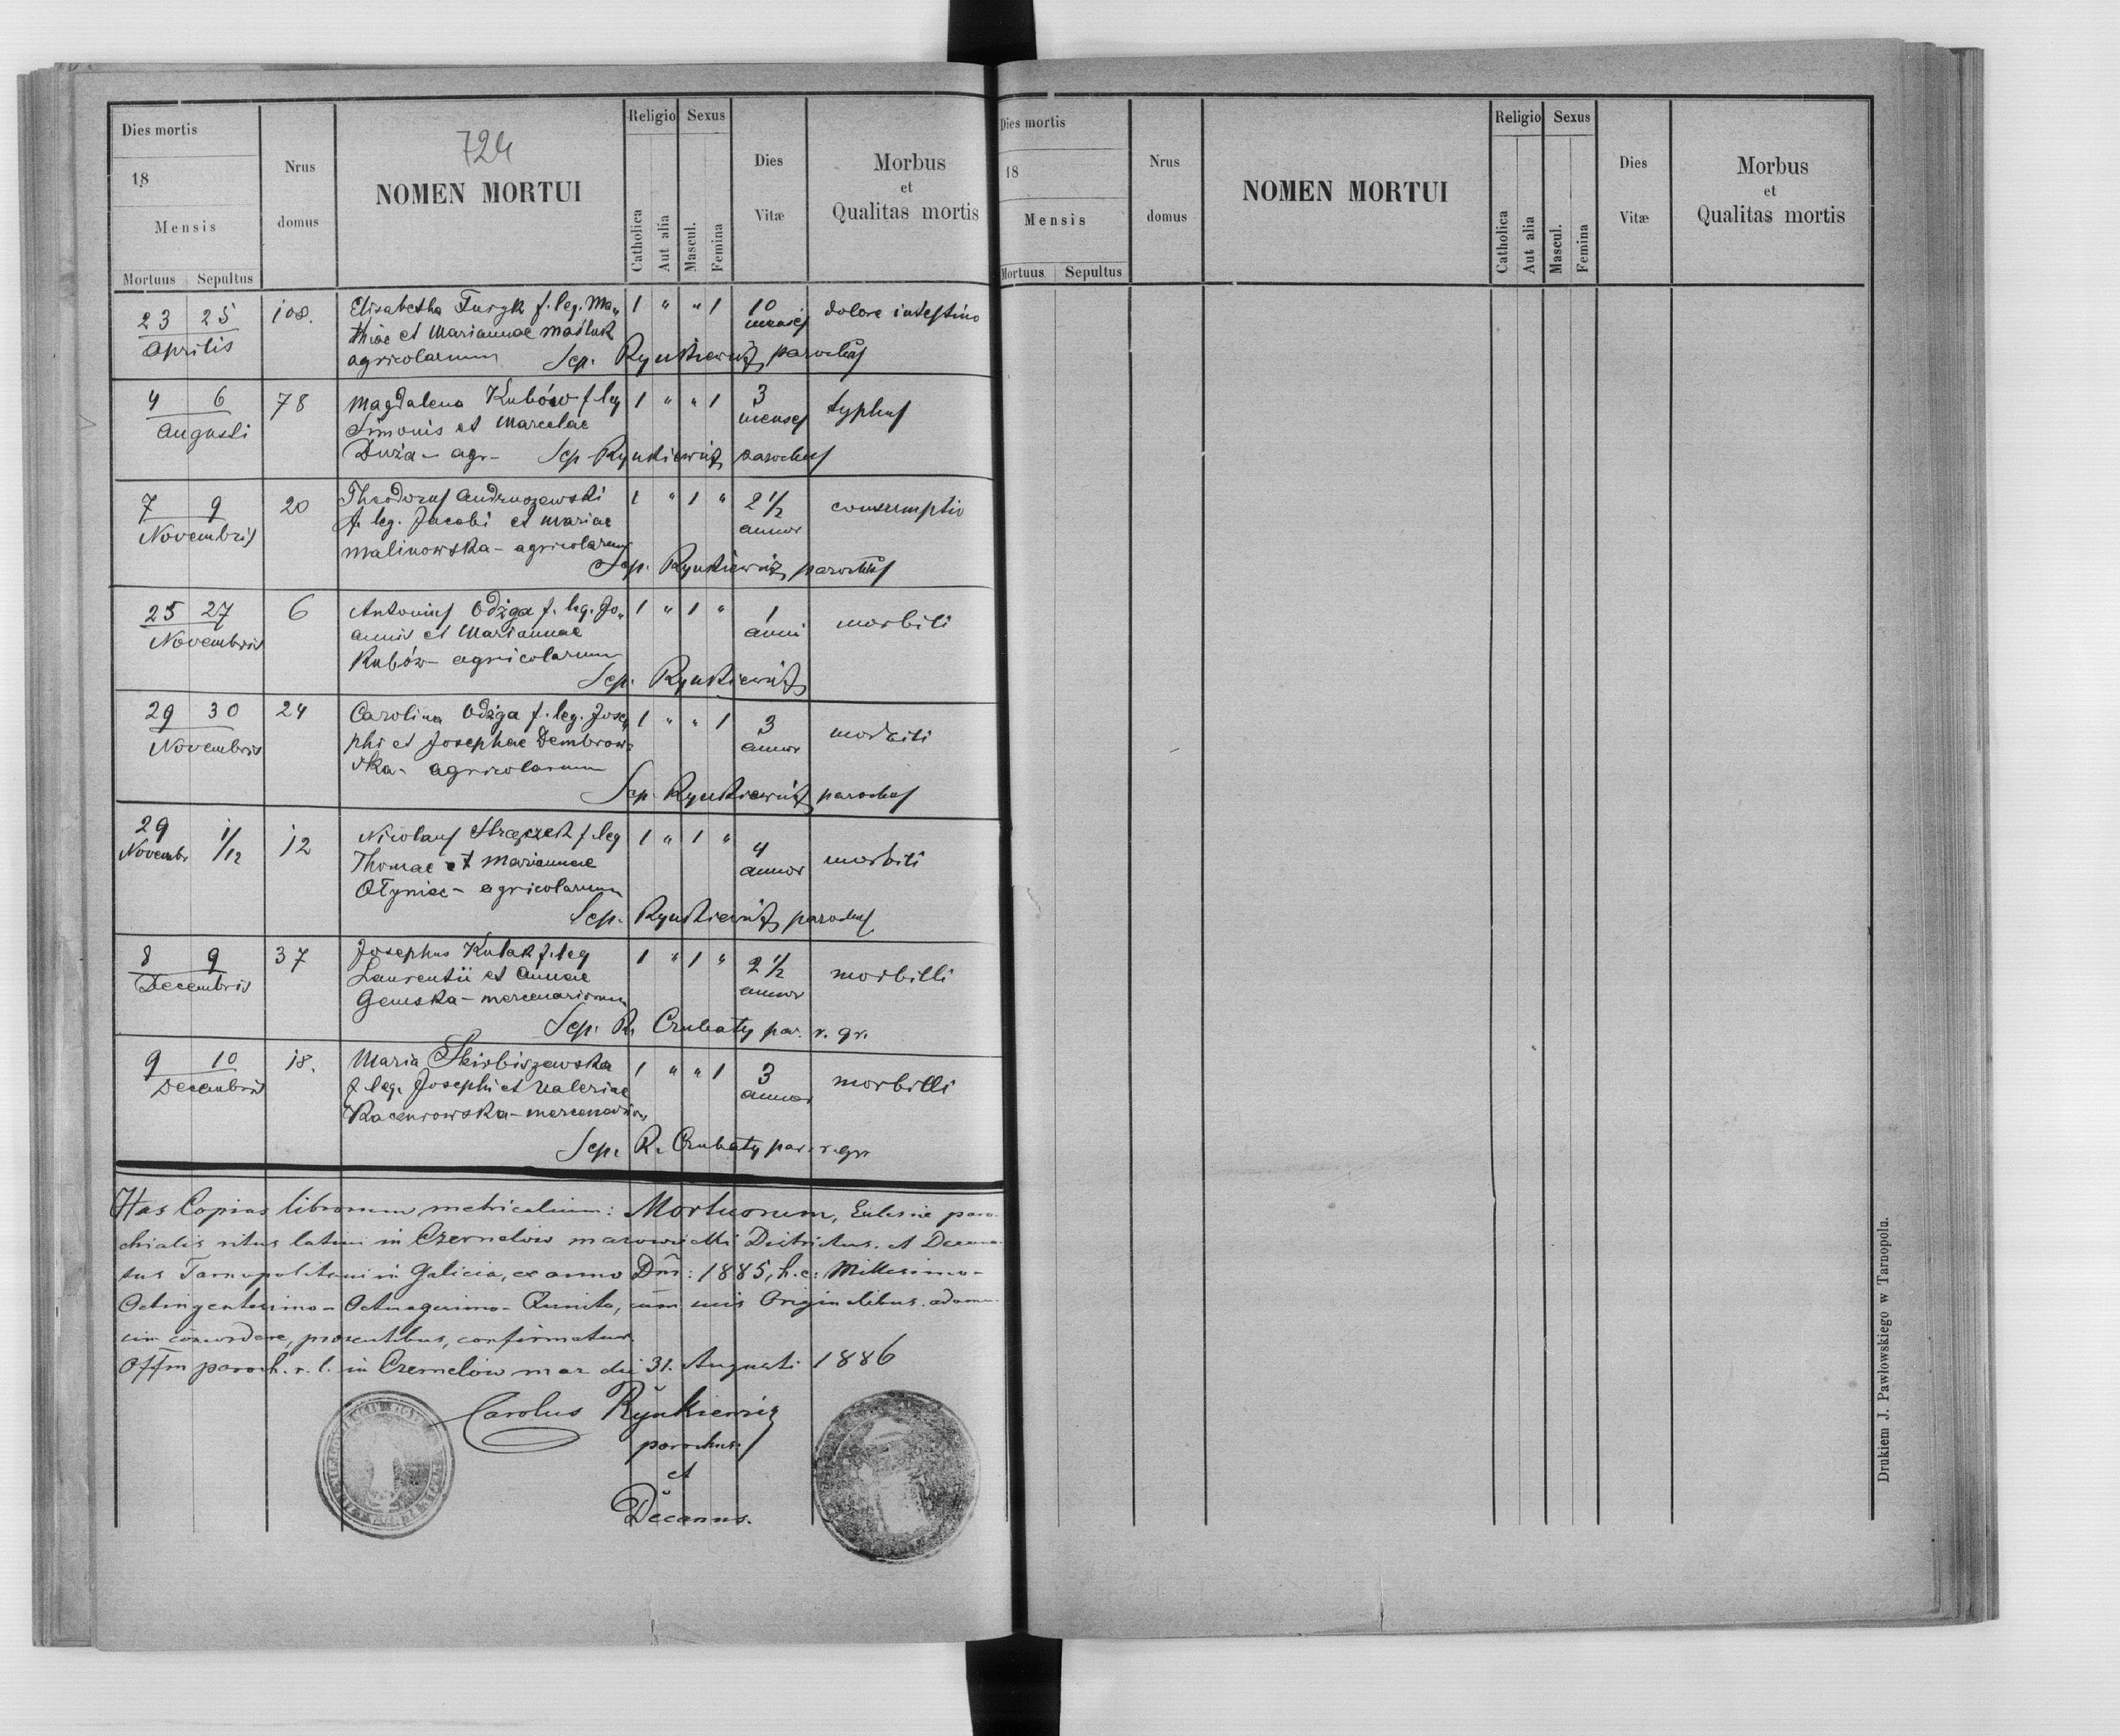 724
Dies mortis
18
Mensis
Mortuus Sepultus
Nrus domus
NOMEN MORTUI
Religio
Catholica
Aut alia
Sexus
Mascul.
Femina
Dies Vitæ
Morbus
et
Qualitas mortis
23 25 108. Elisabetha Turyk f. leg. Ma„ 1 " " 1 10 menses dolore intestino
Aprilis thiae et Mariannae Maśluk
agricolarum Sep. Rynkiewicz parochus
4 6 78 Magdalena Kubów f. leg 1 " " 1 3 menses typhus
Augusti Simonis et Marcelae
Duża - agr- Sep Rynkiewicz parochus
7 9 20 Theodorus Andruszewski 1 " 1 " 2 1/2 annor consumptio
Novembris f. leg. Jacobi et Mariae
Malinowska - agricolarum
Sep. Rynkiewicz parochus
25 27 6 Antonius Odżga f. leg. Jo„ 1 " 1 " 1 anni morbili
Novembris annis et Mariannae
Kubów - agricolarum
Sep. Rynkiewicz
29 30 24 Carolina Odżga f. leg. Jose„ 1 " " 1 3 annor morbili
Novembris phi et Josephae Dembrow„
ska - agricolarum
Sep. Rynkiewicz parochus
29 Novembr 1/12 12 Nicolaus f. leg 1 " 1 " 4 annor morbili
Thomae et Mariannae
Ołyniec - agricolarum
Sep. Rynkiewicz parochus
8 9 37 Josephus Kulak f. leg 1 " 1 " 2 1/2 annor morbilli
Decembris Laurentii et Annae
Gemska - mercenariorum
Sep. R. Czubaty par. r. gr.
9 10 18. Maria Skirbiszewska 1 " " 1 3 annor morbilli
Decembris f. leg. Josephi et Valeriae
Sep. R. Czubaty par. r. gr.
Has Copias librorum metricalium: Mortuorum, Eclesiae paro-
chialis ritus latini in Czernelow mazowiecki Districtus. et Decana-
tus Tarnopolitani in Galicia, ex anno Dni: 1885, h. e: Millesimo-
Octingentesimo - Octuagesimo - Quinto, cum suis Originalibus adamu-
sim concordare, praesentibus, confirmatur
Offm paroch. r. l. in Czernelow maz die 31. Augusti 1886
Carolus Rynkiewicz
parochus
et
Decanus.
Dies mortis
18
Mensis
Mortuus Sepultus
Nrus domus
NOMEN MORTUI
Religio
Catholica
Aut alia
Sexus
Mascul.
Femina
Dies Vitæ
Morbus
et
Qualitas mortis
Drukiem J. Pawłowskiego w Tarnopolu.